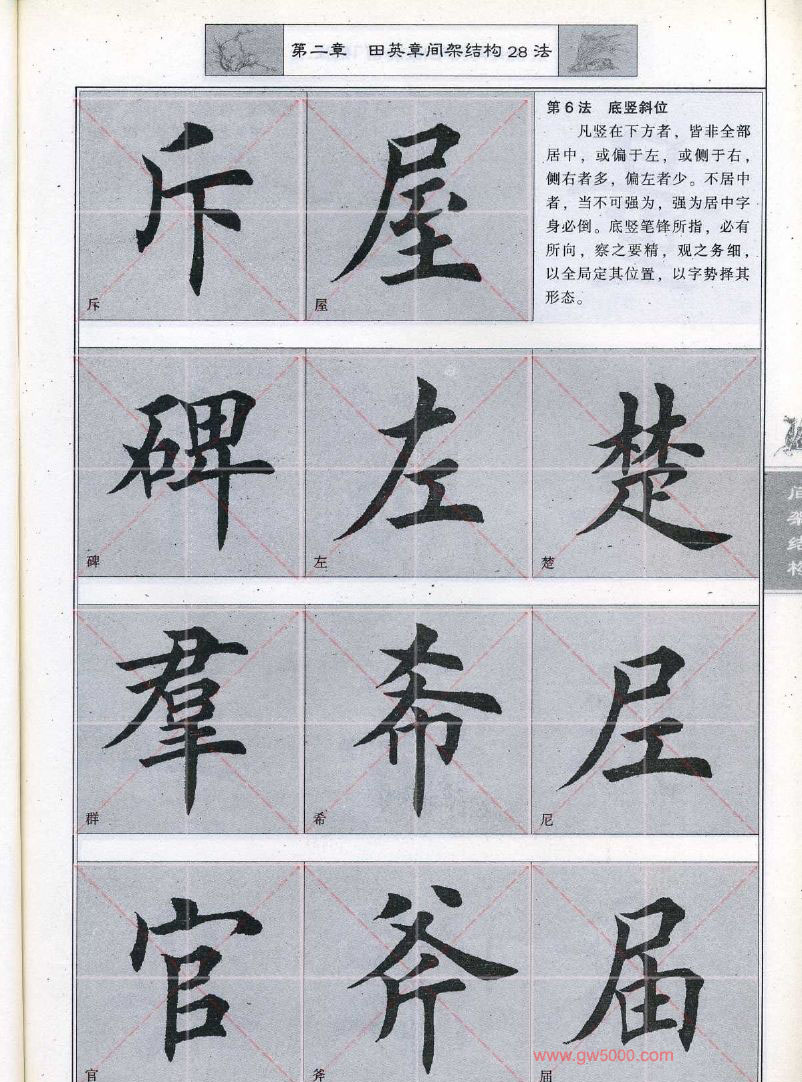 第二章 田英章间架结构28法
第6法 底竖斜位
凡竖在下方者，皆非全部
居中，或偏于左，或侧于右，
侧右者多，偏左者少。不居中
者，当不可强为，强为居中字
身必倒。底竖笔锋所指，必有
所向，察之要精，观之务细，
以全局定其位置，以字势择其
形态。
斥 屋
斥 屋
碑 左 楚
碑 左 楚
羣 希 𡰥
群 希 尼
官 斧 届
官 斧 届
间架结构
www.gw5000.com